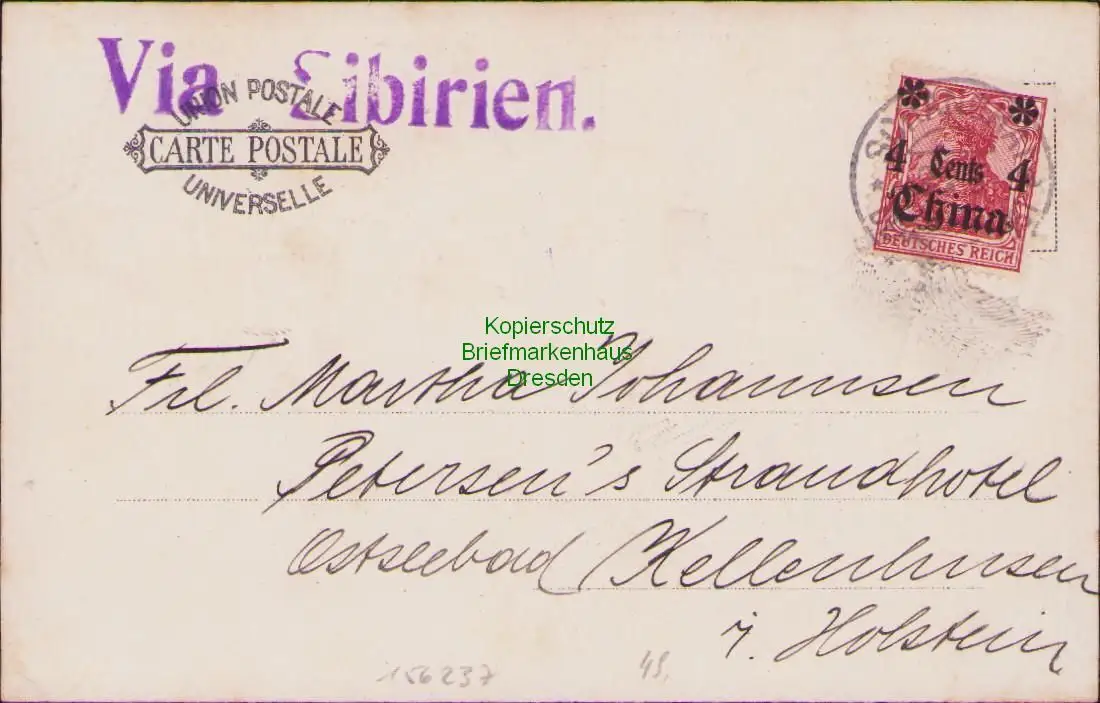 Via Sibirien.
UNION POSTALE
CARTE POSTALE
UNIVERSELLE
4 Cents 4
China
DEUTSCHES REICH
Kopierschutz
Briefmarkenhaus
Dresden
Frl. Martha Johannsen
Petersen's Strandhotel
Ostseebad Kellenhusen
i. Holstein
156237